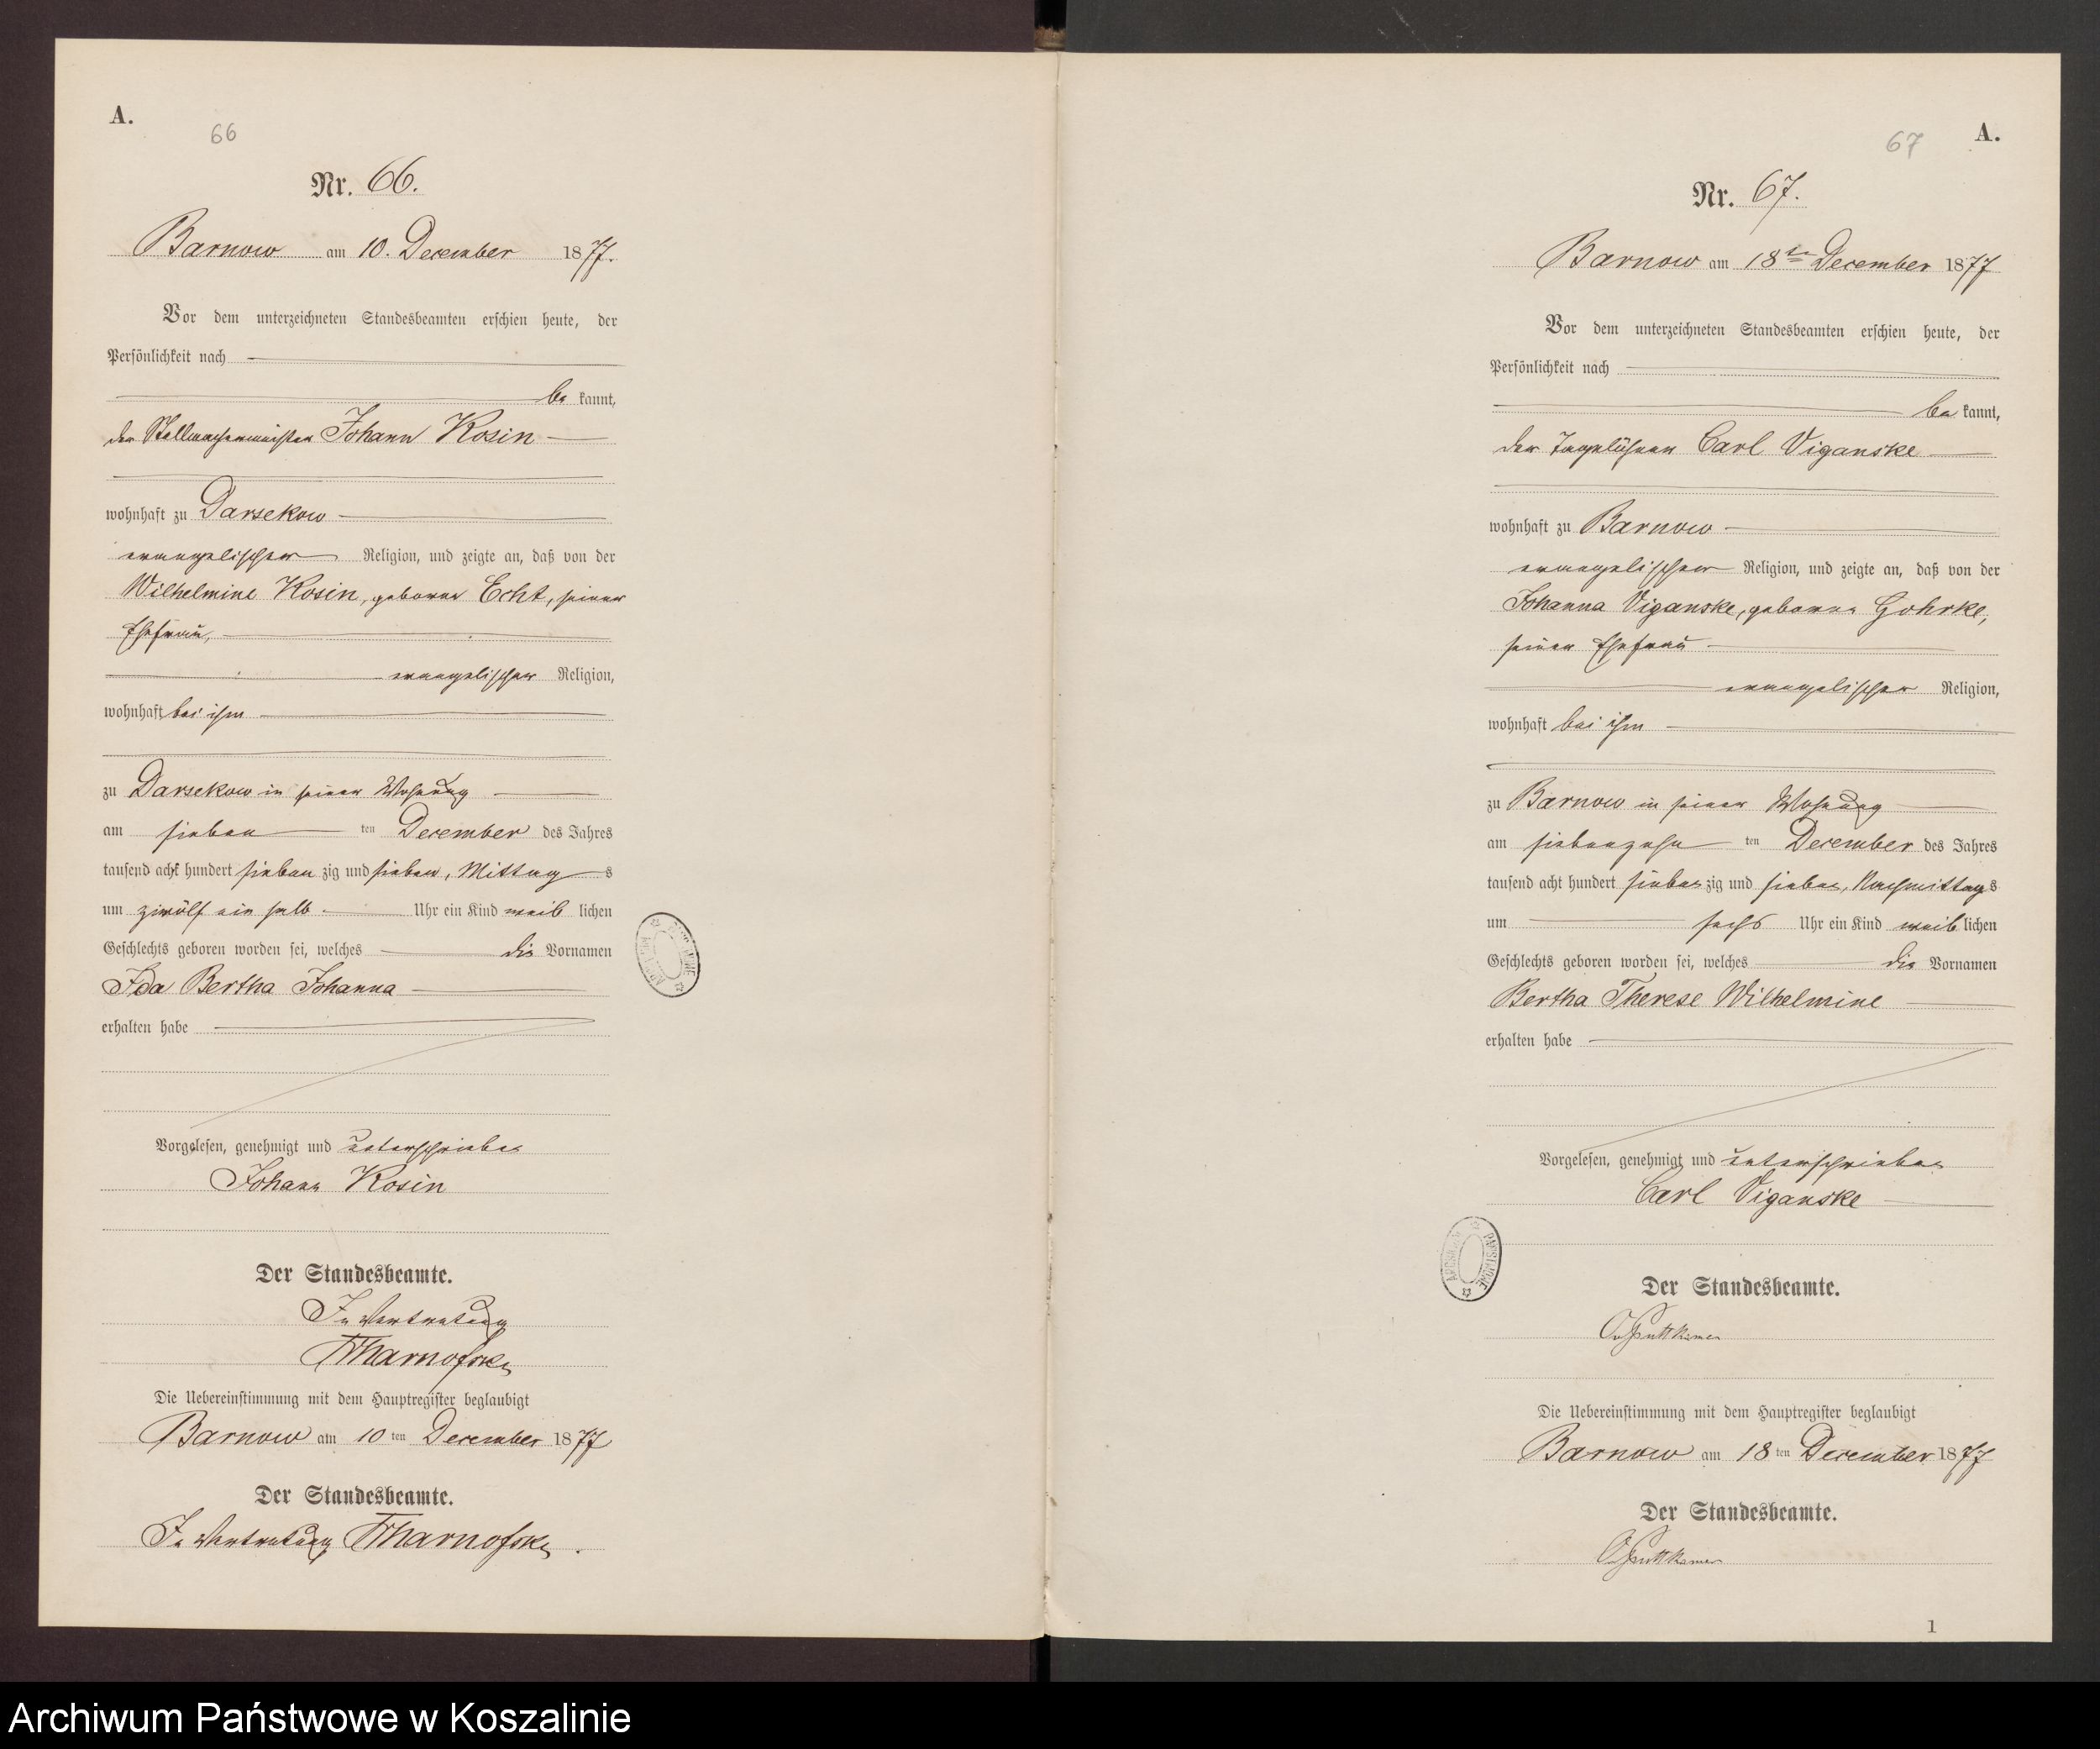 A.
66
Nr. 66.
Barnow am 10. December 1877.
Vor dem unterzeichneten Standesbeamten erschien heute, der
Persönlichkeit nach
be kannt,
der Stellmachermeister Johann Kosin
wohnhaft zu Darsekow
evangelischer Religion, und zeigte an, daß von der
Wilhelmine Kosin, geborne Echt, seiner
Ehefrau,
evangelischer Religion,
wohnhaft bei ihm
zu Darsekow in seiner Wohnung
am sieben ten December des Jahres
tausend acht hundert sieben zig und sieben, Mittag s
um zwölf ein halb Uhr ein Kind weib lichen
Geschlechts geboren worden sei, welches die Vornamen
Ida Bertha Johanna
erhalten habe
Vorgelesen, genehmigt und unterschrieben
Johann Kosin
Der Standesbeamte.
In Vertretung
Die Uebereinstimmung mit dem Hauptregister beglaubigt
Barnow am 10 ten December 1877
Der Standesbeamte.
In Vertretung
67
A.
Nr. 67.
Barnow am 18ten December 1877
Vor dem unterzeichneten Standesbeamten erschien heute, der
Persönlichkeit nach
be kannt,
der Tagelöhner Carl Viganske
wohnhaft zu Barnow
evangelischer Religion, und zeigte an, daß von der
Johanna Viganske, geborne Gohrke,
seiner Ehefrau
evangelischer Religion,
wohnhaft bei ihm
zu Barnow in seiner Wohnung
am siebenzehn ten December des Jahres
tausend acht hundert sieben zig und sieben, Nachmittag s
um sechs Uhr ein Kind weib lichen
Geschlechts geboren worden sei, welches die Vornamen
Bertha Therese Wilhelmine
erhalten habe
Vorgelesen, genehmigt und unterschrieben
Carl Viganske
Der Standesbeamte.
Die Uebereinstimmung mit dem Hauptregister beglaubigt
Barnow am 18 ten December 1877
Der Standesbeamte.
1
Archiwum Państwowe w Koszalinie